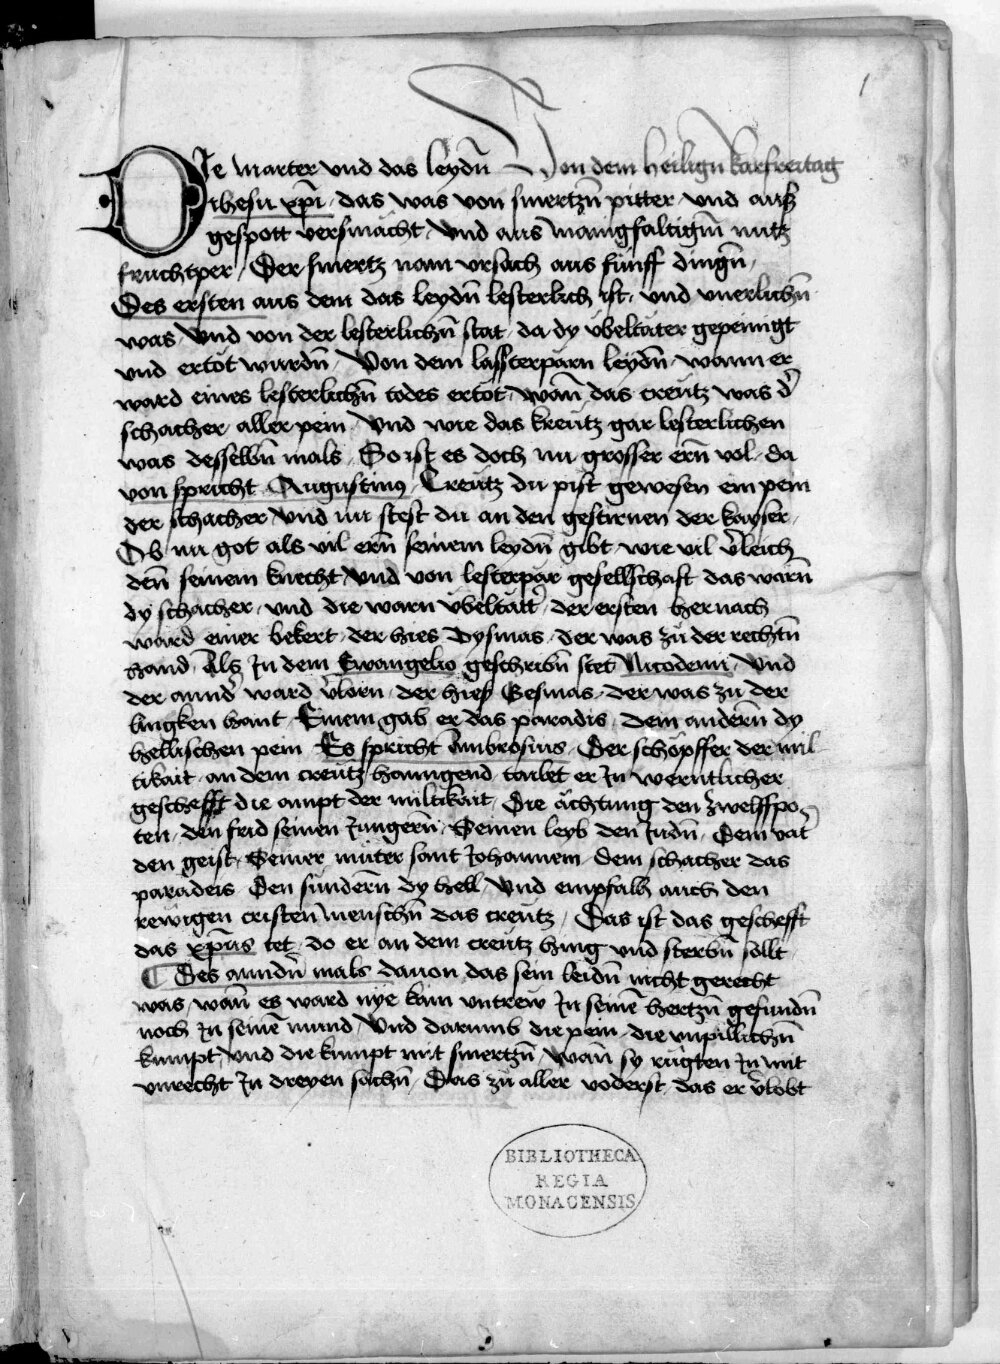 1
DIe marter vnd das leydn̄ Von dem heilign̄ karfreitag
ihesu xp̄i · das was von smertzn̄ pitter · vnd auß
gespött versmächt · Vnd aus manigfaltigm̄ nutz
fruchtper / Der smertz nam vrsach aus fünff dingn̄ /
Des ersten aus dem das leydn̄ lesterlich ist · vnd vnerlichn̄
was · Vnd von der lesterlichn̄ stat · da dy übeltäter gepeinigt
vnd ertöt wurdn̄ / Von dem lassterpärn leydn̄ · wann er
ward eines lesterlichn̄ todes ertöt · wan̄ das creütz was d̾
schacher aller pein · Vnd wie das kreütz gar lesterlichen
was desselbn̄ mals · So ist es doch nu grosser ern̄ vol · da
von spricht Augustinus · Creütz du pist gewesen ein pein
der schacher · Vnd nu stest du an den gestirnen der kayser ·
Ob nu got als vil ern̄ seinem leydn̄ gibt · wie vil v̾leich
den̄ seinem knecht · Vnd von lesterpär gesellschaft das warn̄
dy schacher · vnd die warn übeltätt̾ · der ersten hernach
ward einer bekert · der hies Dysmas · der was zu der rechtn̄
hand · Als In dem Ewangelio geschribn̄ stet Nicodemi · Vnd
der annd̾ ward v̾lorn · der hieß Gesmas · der was zu der
lingken hant · Einem gab er das paradis · dem andern̄ dy
hellischen pein · Es spricht Ambrosius · Der schöpffer der mil
tikait · an dem creütz hanngend · tailet er In werntlicher
geschefft die ampt der miltikait · Die ächtung den zwelffpo
ten · den frid seinen Jungern̄ · Seinen leyb den Judn̄ · Dem vat̾
den geist · Seiner müter sant Johannem · dem schacher das
paradeis · Den sündern̄ dy hell · Vnd empfalh auch den
rewigen cristen menschn̄ das creütz / Das ist das geschefft
das xp̄us tet · do er an dem creütz hing · vnd sterbn̄ sollt ·
¶ Des anndn̄ mals dauon · das sein leidn̄ nicht gerecht
was · wan̄ es ward nye kain vntrew In seinē hertzn̄ gefundn̄
noch In seinē mund · Vnd darumb die pein · die vnpillichn̄
kumpt · vnd die kumpt mit smertzn̄ · wan̄ sy rügten In mit
vnrecht In dreyen sachn̄ · Das zu aller voderst · das er v̾lobt
BIBLIOTHECA
REGIA
MONACENSIS